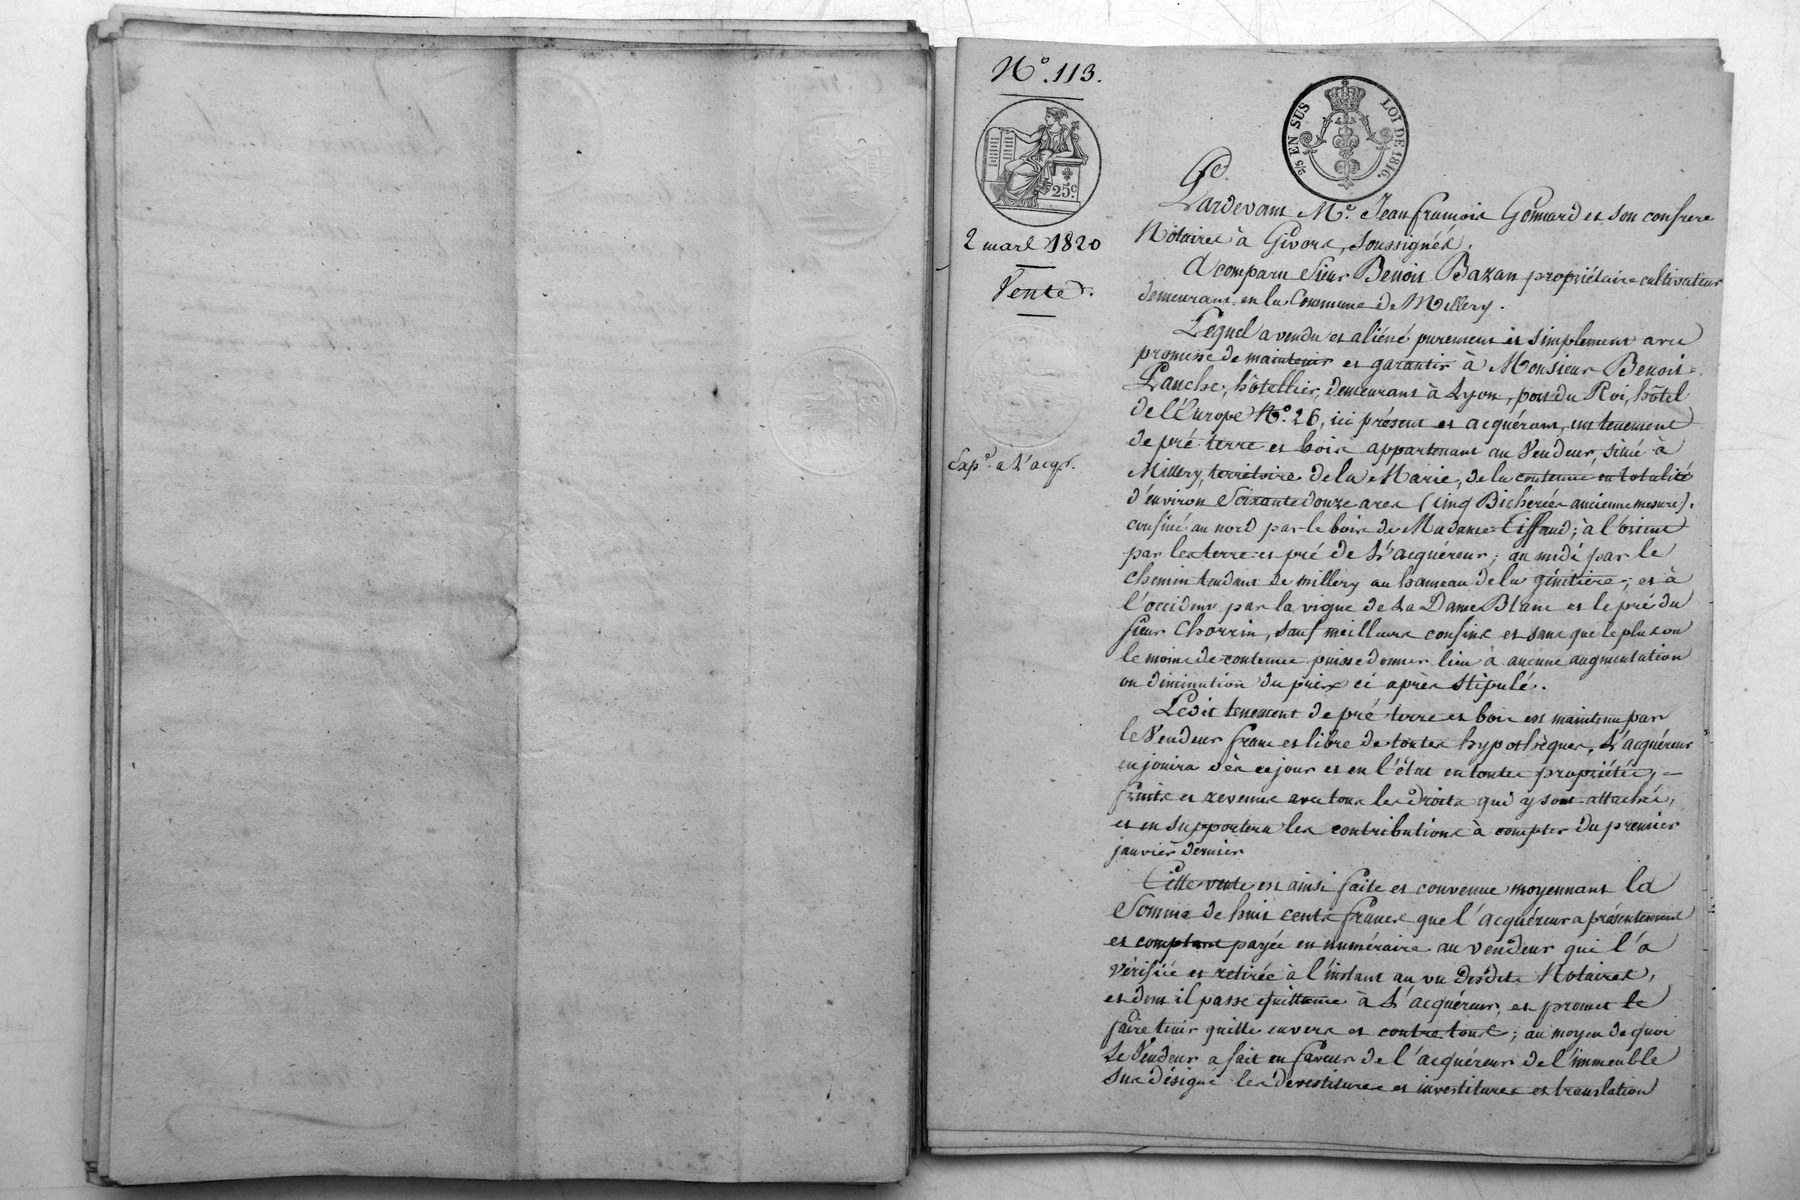 N.° 113.
2/5 EN SUS LOI DE 1816.
25.c
2 mars 1820
Vente.
Exp.on a L'acqr.
Pardevant M.e Jean françois Gonnard et son confrere
Notaires à Givors, soussignés.
A comparu Sieur Benoit Bazan propriétaire cultivateur
demeurant en la Commune de Millery.
Lequel a vendu et aliéné purement et simplement avec
promesse de maintenir et garantir à Monsieur Benoit
Lanche, hôtellier, demeurant à Lyon, port du Roi, hôtel
de l'Europe N.° 26, ici présent et acquérant, un tenement
de pré terre et bois appartenant au Vendeur, situé à
Millery, territoire de la Marie, de la contenue en totalité
d'environ Soixante douze ares (cinq Bicherées ancienne mesure),
confiné au nord par le bois de Madame Tiffaud; à l'orient
par les terre et pré de L'acquéreur; au midi par le
chemin tendant de millery au hameau de la génitiere; et à
l'occident par la vigne de La Dame Blanc et le pré du
sieur Chorrin, sauf meilleurs confins et sans que le plus ou
le moins de contenue puisse donner lieu à aucune augmentation
ou diminution du prix ci après stipulé.
Ledit tenement de pré terre et bois est maintenu par
le Vendeur franc et libre de toutes hypothèques, L'acquéreur
en jouira dès ce jour et en l'état en toutes propriétés,
fruits et revenus avec tous les droits qui y sont attachés,
et en supportera les contributions à compter du premier
janvier dernier
Cette vente est ainsi faite et convenue moyennant la
Somme de huit cents francs que l'acquéreur a présentement
et comptant payée en numéraire au vendeur qui l'a
vérifiée et retirée à l'instant au vu desdits Notaires,
et dont il passe quittance à L'acquéreur, et promet le
faire tenir quitte envers et contre tous; au moyen de quoi
Le Vendeur a fait en faveur de l'acquéreur de l'immeuble
sus désigné les devestitures et investitures et translation